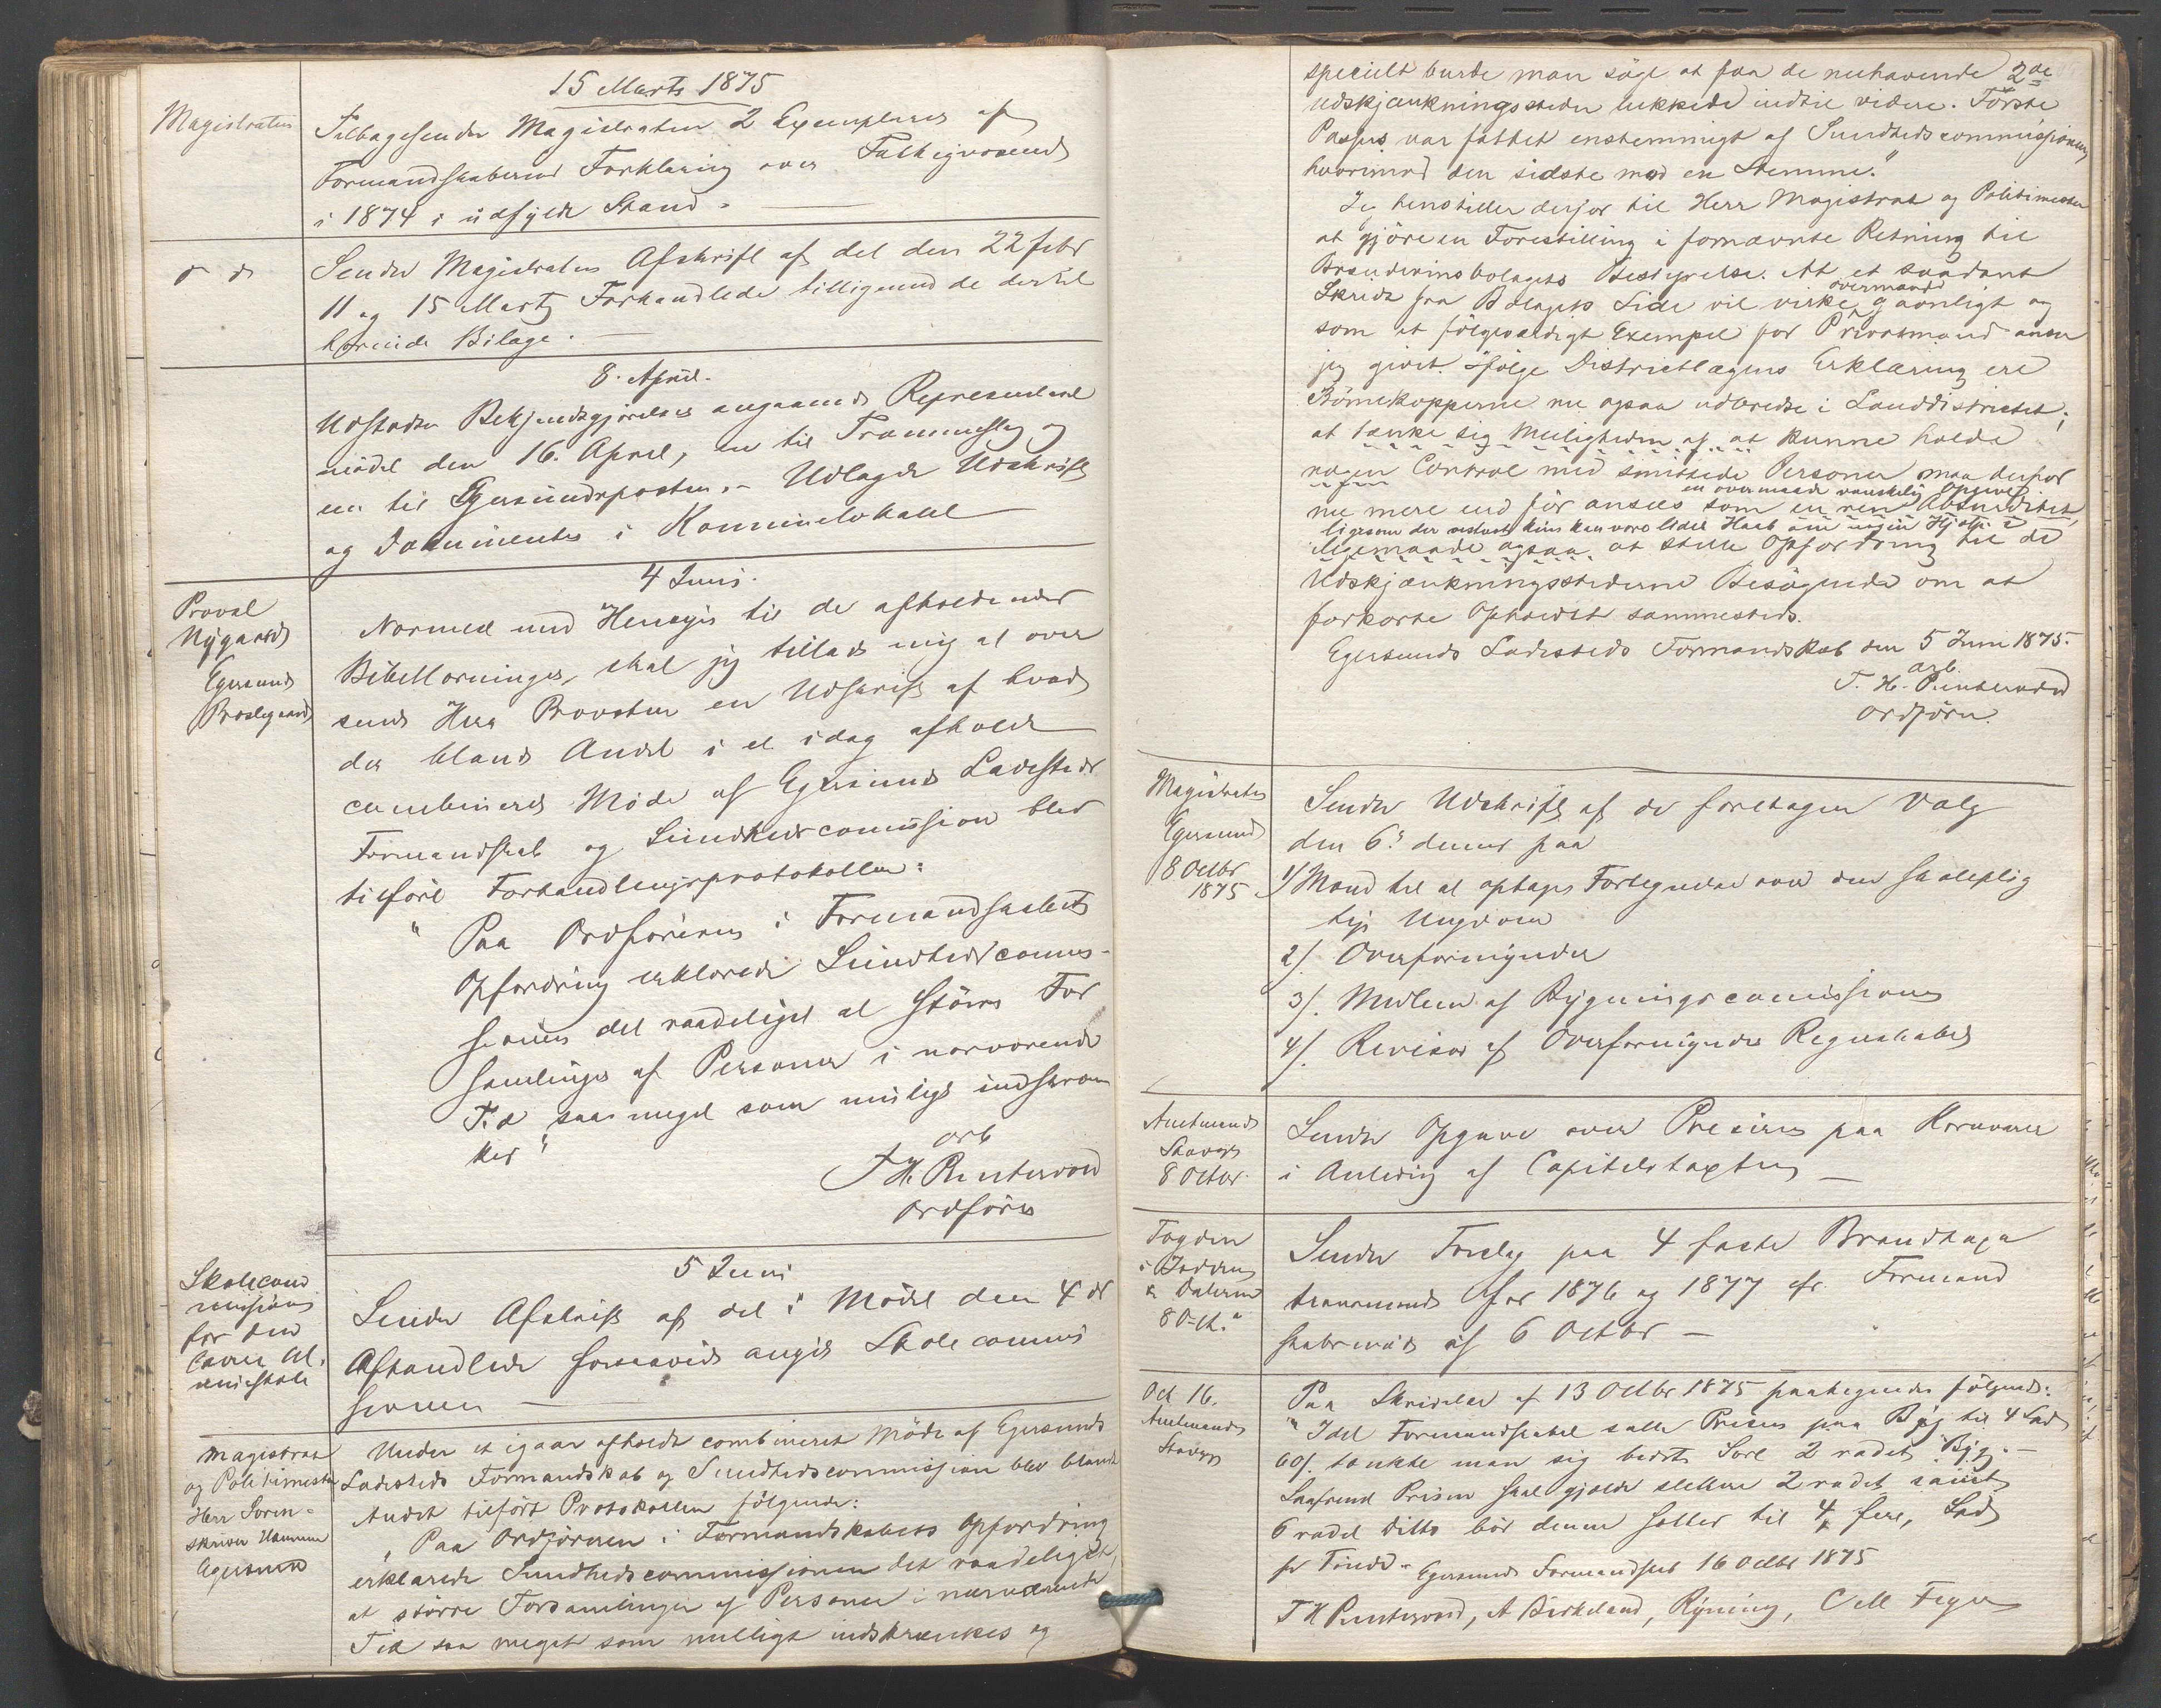 15 Marts 1875
Magistraten
Tilbagesender Magistraten 2 Exemplarer af
Formandskabernes Forklaring over Fattigvæsenet
i 1874 i udfyldt Stand. —
d d
Sender Magistraten Afskrift af det den 22 Febr
11 og 15 Marts Forhandlede tilligemed de dertil
hørende Bilage. —
8. April.
Udstedte Bekjendtgjørelser angaaende Represent
mødet den 16. April, en til Trommeslag og
en til Egersundsposten. – Udlagde Udskrift
og Documenter i Kommunelokalet —
4 Juni.
Provst
Nygaard
Egersunds
Prestegaard
Normed med Hensyn til de afholdende
Bibellæsninger, skal jeg tillade mig at over
sende Herr Provsten en Udskrift af hvad
der blandt Andet i et idag afholdt
combineret Møde af Egersunds Ladesteds
Formandskab og Sundhedscommission blev
tilført Forhandlingsprotokollen:
" Paa Ordførerens i Formandskabets
Opfordring erklærede Sundhedscommis-
sionen det raadeligst at større For
samlinger af Personer i nærværende
Tid saa meget som muligt indskræn
kes "
arb
T. H. Puntervold
Ordfører
5 Juni
Skolecom
missionen
for den
lavere Al.
mueskole
Sender Afskrift af det i Mødet den 4 ds
Afhandlede forsaavidt angik Skolecommis
sionen —
Magistrat
og Politimester
Herr Soren-
skriver
Egersund
Under et igaar afholdt combineret Møde af Egersunds
Ladesteds Formandskab og Sundhedscommission blev blandt
Andet tilført Protokollen følgende:
" Paa Ordførerens i Formandskabets Opfordring
erklærede Sundhedscommissionen det raadeligst,
at större Forsamlinger af Personer i nærværende
Tid saa meget som muligt indskrænkes og
specielt burde man söge at faa de nuhavende 2de
Udskjænkningssteder lukkede indtil videre. Förste
Passus var fattet enstemmigt af Sundhedscommissionen,
hvorimod den sidste mod en Stemme."
Jeg henstiller derfor til Herr Magistrat og Politimester
at gjöre en Forestilling i fornævnte Retning til
Brændevinsbolagets Bestyrelse. At et saadant
Skridt fra Bolagets Side vil virke overmaade gavnligt og
som et fölgeværdigt Exempel for Privatmænd anser
jeg givet. Ifölge Districtlægens Erklæring ere
Börnekopperne nu ogsaa udbredte i Landdistrictet;
at tænke sig Muligheden af at kunne holde
nogen Control med smittede Personer maa derfor
en overmaade vanskelig Opgave
nu mere end för ansees som en ren Absurditet,
ligesom der vistnok kun kan være lidet Haab om nogen Hjælp i
iligemaade ogsaa at stille Opfordring til de
Udskjænkningsstederne Besögende om at
forkorte Opholdet sammesteds.
Egersunds Ladesteds Formandskab den 5 Juni 1875.
arb.
T. H. Puntervold
Ordförer.
Magistraten
Egersund
8 Octbr
1875
Sender Udskrift af de foretagne Valg
den 6te dennes paa
1/ Mænd til at optage Fortegnelse over den skoleplig
tige Ungdom
2/. Overformynder
3/. Medlem af Bygningscommissionen
4/. Revisor af Overformynder Regnskabet
Amtmanden
Stavanger
8 Octbr.
Sender Opgave over Priserne paa Kornvarer
i Anledning af Capitelstaxten —
Fogden
i Jæderen
& Dalerne
8 Oct.
Sender Forslag paa 4 faste Brandtaxa
tionsmænd for 1876 og 1877 cfr. Formand
skabsmøde af 6 Octbr —
Oct 16.
Amtmanden
Stavanger
Paa Skrivelse af 13 Octbr 1875 paategnedes følgende:
" Idet Formandskabet satte Prisen paa Byg til 4 Spd
60/. tænkte man sig bedste Sort 2 radet Byg. —
Saafremt Prisen skal gjælde slettere 2 radet samt
6 radet ditto bør denne sættes til 4, fire, Spd
pr Tønde. Egersunds Formandskab 16 Octbr 1875
T H Puntervold, A Birkeland, Rÿning, C M Feyer